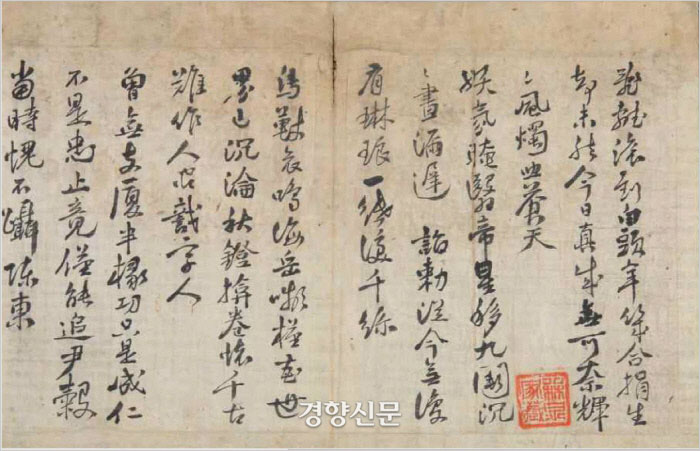 亂離滾到白頭年幾合捐生
却未然今日真成無可奈輝
々風燭照蒼天
妖氛晻翳帝星移九闕沉
々晝漏遲 詔勅從今無復
有琳琅一紙淚千絲
鳥獸哀鳴海岳嚬槿花世
界已沉淪秋鐙揜卷懷千古
難作人間識字人
曾無支厦半椽功只是成仁
不是忠止竟僅能追尹穀
當時愧不躡陳東
경향신문